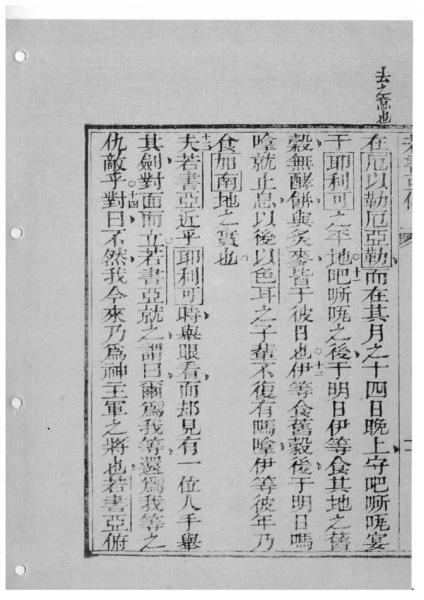 去之意也
在厄以勒厄亞勒而在其月之十四日晚上守吧嘶宴
于耶利可之平地十一吧嘶之後于明日伊等食其地之舊
穀無酵餅與炙麥皆于彼日也。十二伊等食舊穀後于明日嗎
嗱就止息以後以色耳之子輩不復有嗎嗱伊等彼年乃
食加南地之實也。
十三夫若書亞近乎耶利可時舉眼看而却見有一位人手舉
其劍對面而立。若書亞就之謂曰爾爲我等還爲我等之
仇敵乎。十四對曰不然我今來乃爲神主軍之將也若書亞俯